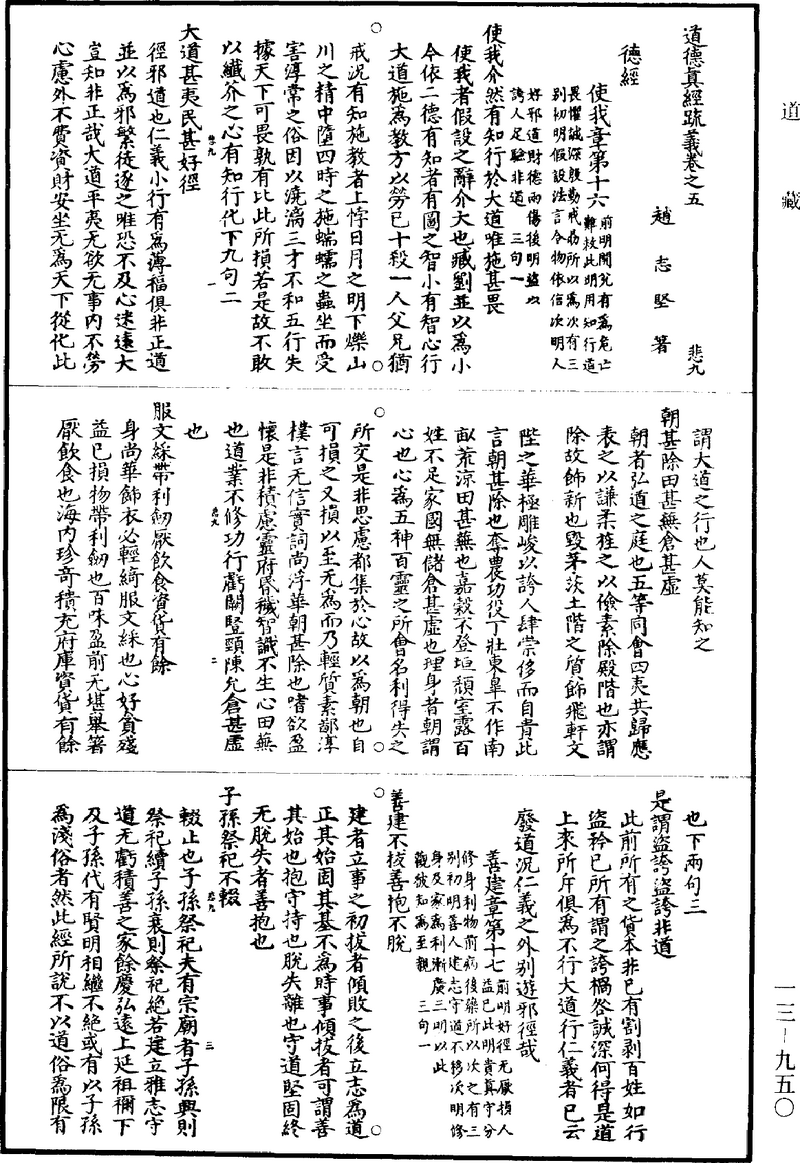 道藏
道德真經疏義卷之五
悲九
趙志堅著
德經
使我章第十六
前明閱兌有爲危亡
難救此明用知行道
畏懼誠深殷勤戒勗所以爲次有三
別初明假設法言令物依信次明人
好邪道財德兩傷後明盜以
誇人足驗非道 三句一
使我介然有知行於大道唯施甚畏
使我者假設之辭介大也臧劉並以爲小
今依二德有知者有圖之智小有智心行
大道施爲教方以勞已十殺一人父兄猶
戒況有知施教者上悖日月之明下爍山
川之精中墮四時之施蝡蠕之蟲坐而受
害淳常之俗因以澆漓三才不和五行失
據天下可畏孰有比此所損若是故不敢
以纖介之心有知行化下九句二
大道甚夷民甚好徑
徑邪道也仁義小行有爲薄福俱非正道
並以爲邪繁徒逐之唯恐不及心迷遠大
豈知非正哉大道平夷无欲无事內不勞
心慮外不費資財安坐无爲天下從化此
謂大道之行也人莫能知之
朝甚除田甚無倉甚虛
朝者弘道之庭也五等同會四夷共歸應
表之以謙柔旌之以儉素除殿階也亦謂
除故飾新也毀茅茨土階之質飾飛軒文
陛之華極雕峻以誇人肆崇侈而自貴此
言朝甚除也奪農功役丁壯東皐不作南
畝荒涼田甚蕪也嘉穀不登垣頹室露百
姓不足家國無儲倉甚虛也理身者朝謂
心也心爲五神百靈之所會名利得失之
所交是非思慮都集於心故以爲朝也自
可損之又損以至无爲而乃輕質素鄙淳
樸言无信實詞尚浮華朝甚除也嗜欲盈
懷是非積慮靈府昏穢智識不生心田蕪
也道業不修功行虧闕豎頸陳允倉甚虛
也
服文綵帶利劒厭飲食資貨有餘
身尚華飾衣必輕綺服文綵也心好貪殘
益已損物帶利劒也百味盈前无堪舉箸
厭飲食也海內珍奇積充府庫資貨有餘
也下兩句三
是謂盜誇盜誇非道
此前所有之貨本非已有割剥百姓如行
盜矜已所有謂之誇禍咎誠深何得是道
上來所斥俱爲不行大道行仁義者已云
廢道況仁義之外別遊邪徑哉
善建章第十七
前明好徑无厭損人
益已此明貴真守分
修身利物前病後藥所以次之有三
別初明善人建志守道不移次明修
身及家爲利漸廣三明以此
觀彼知爲至觀 三句一
善建不拔善抱不脫
建者立事之初拔者傾敗之後立志爲道
正其始固其基不爲時事傾拔者可謂善
其始也抱守持也脫失離也守道堅固終
无脫失者善抱也
子孫祭祀不輟
輟止也子孫祭祀夫有宗廟者子孫興則
祭祀續子孫衰則祭祀絕若建立雅志守
道无虧積善之家餘慶弘遠上延祖禰下
及子孫代有賢明相繼不絕或有以子孫
爲淺俗者然此經所說不以道俗爲限有
一三-九五〇